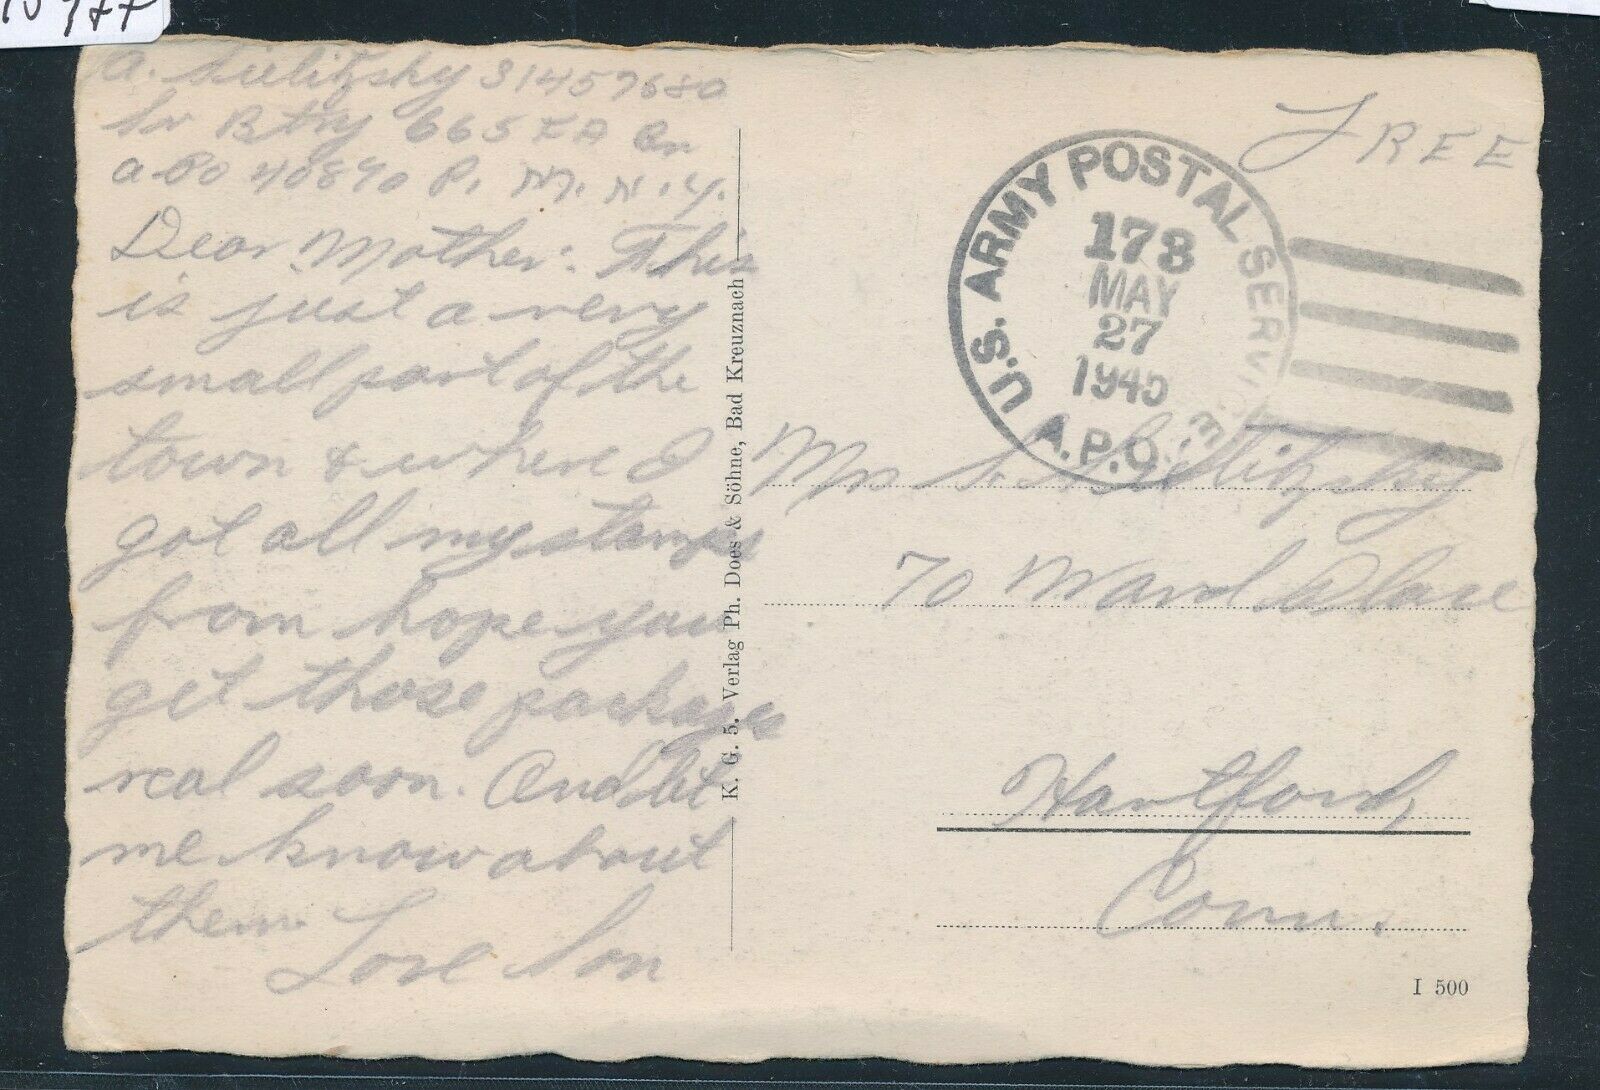 A. Sielitzky 31457680
Sv Btry 665 FA Bn
A.P.O 40890 P. M. N.Y.
Dear Mother: This
is just a very
small part of the
town & where I
got all my stamps
from hope you
get those packages
real soon. And let
me know about
them.
Love Son
K. G. 5. Verlag Ph. Does & Söhne, Bad Kreuznach
FREE
U.S. ARMY POSTAL SERVICE
A.P.O.
173
MAY
27
1945
Mrs S. Sielitzsky
70 Ward Place
Hartford,
Conn.
I 500